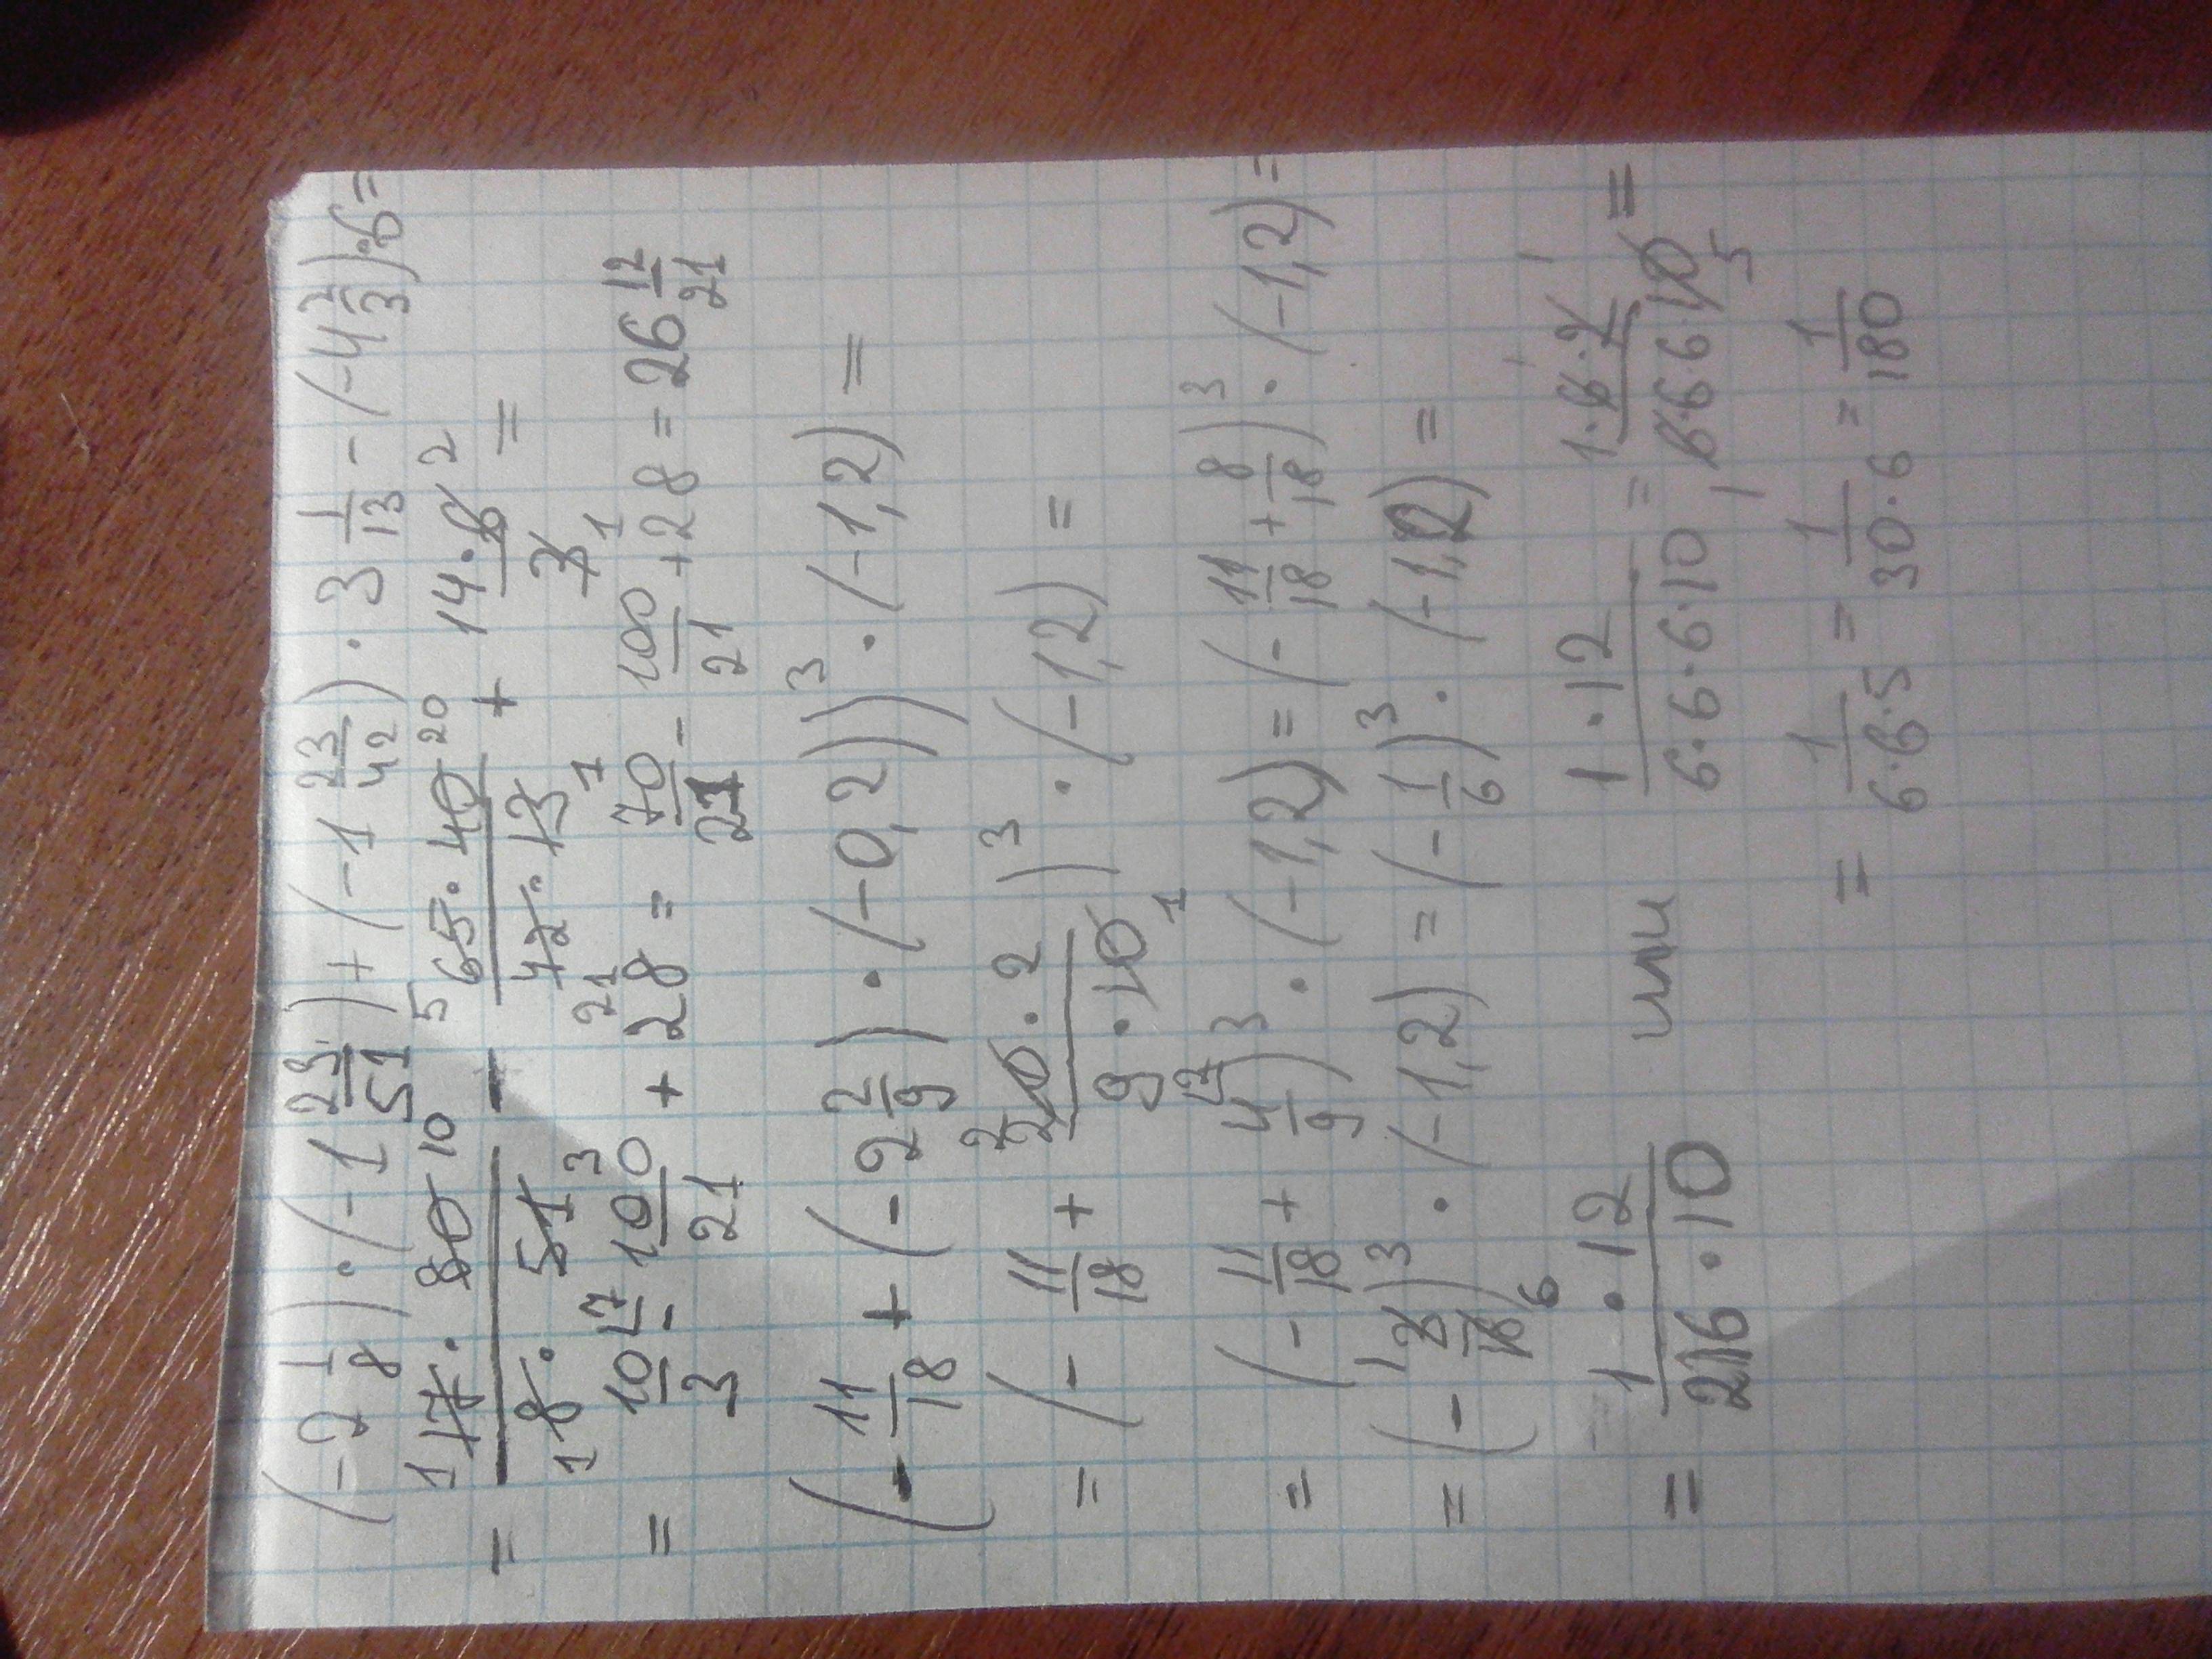 (-2 1/8) · (-1 23/51) + (-1 23/42) · 3 1/13 - (-4 2/3) · 6 =
= 1 17 · 80 10 / 1 8 · 51 3 - 5 65 · 40 20 / 42 21 · 13 1 + 14 · 6 2 / 3 1 =
= 10/3 17 - 100/21 + 28 = 70/21 - 100/21 + 28 = 26 12/21
(- 11/18 + (-2 2/9) · (-0,2))³ · (-1,2) =
= (- 11/18 + 2 20 · 2 / 9 · 10 1)³ · (-1,2) =
= (- 11/18 + 4 12/9)³ · (-1,2) = (- 11/18 + 8/18)³ · (-1,2) =
= (- 1 3/18 6)³ · (-1,2) = (- 1/6)³ · (-1,2) =
= 1 · 12 / 216 · 10 или 1 · 12 / 6 · 6 · 6 · 10 = 1 · 6 1 · 2 1 / 1 6 · 6 · 6 · 10 5 =
= 1 / 6 · 6 · 5 = 1 / 30 · 6 = 1/180